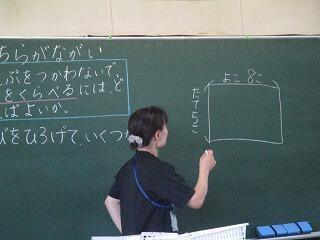 ちらがながい
ぶをつかわないで、
をくらべるには、ど
ばよいか。
びをひろげて、いくつ
よこ8こ
たて5こ